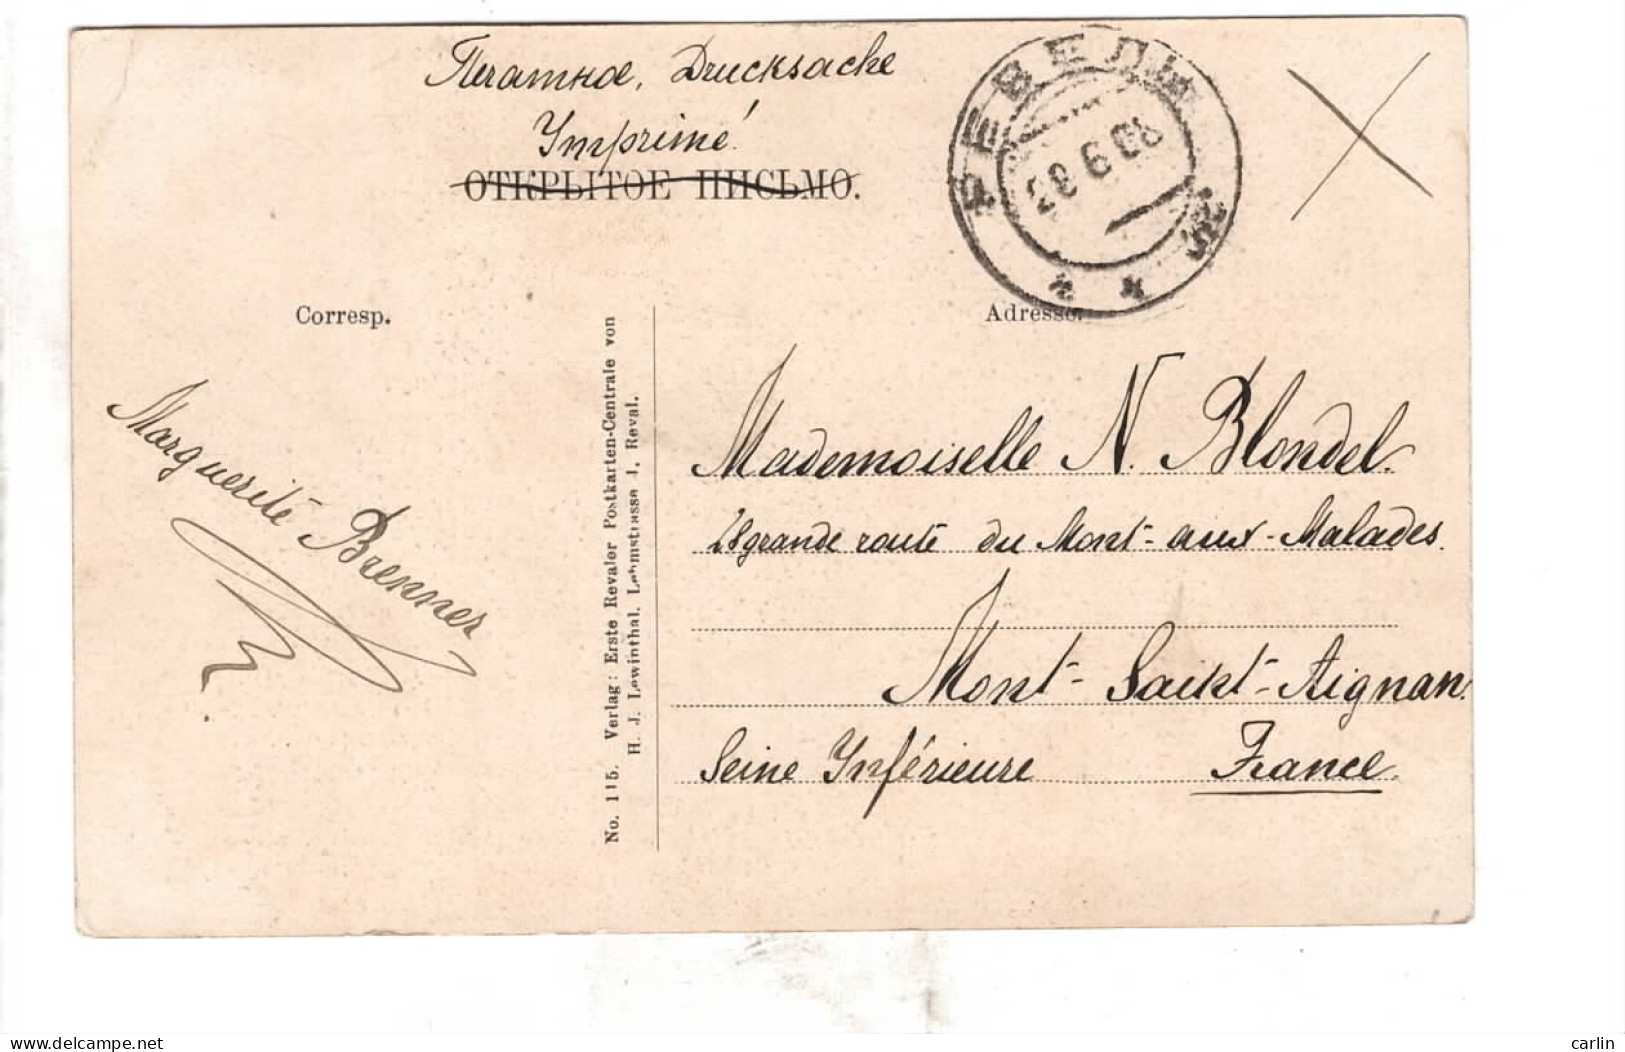 Печатное, Drucksache
Imprimé
ОТКРЫТОЕ ПИСЬМО.
РЕВЕЛЬ
Corresp.
Adresse.
Marguerite Brenner
No. 115. Verlag: Erste Revaler Postkarten-Centrale von
H. J. Lewinthal. Lehmstrasse 1, Reval.
Mademoiselle N. Blondel.
28 grande route du Mont-aux-Malades.
Mont-Saint-Aignan.
Seine Inférieure France.
carlin
delcampe.net